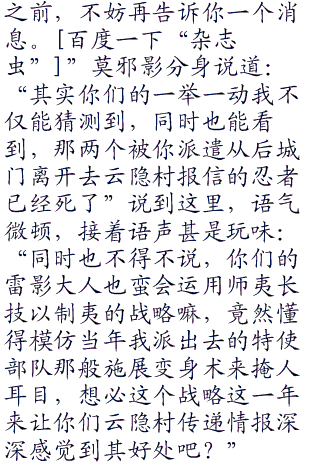 之前，不妨再告诉你一个消
息。[百度一下“杂志
虫”]”莫邪影分身说道：
“其实你们的一举一动我不
仅能猜测到，同时也能看
到，那两个被你派遣从后城
门离开去云隐村报信的忍者
已经死了”说到这里，语气
微顿，接着语声甚是玩味：
“同时也不得不说，你们的
雷影大人也蛮会运用师夷长
技以制夷的战略嘛，竟然懂
得模仿当年我派出去的特使
部队那般施展变身术来掩人
耳目，想必这个战略这一年
来让你们云隐村传递情报深
深感觉到其好处吧？”